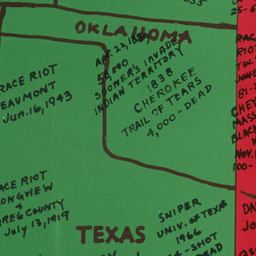 OKLAHOMA
APR. 22, 1889
50,000
SOONER'S INVADE
INDIAN TERRITORY
1838
CHEROKEE
TRAIL OF TEARS
4,000-DEAD
RACE RIOT
BEAUMONT
Jun. 16, 1943
RACE RIOT
LONGVIEW
+
GREGG COUNTY
July 13, 1919
TEXAS
SNIPER
UNIV. OF TEXAS
1966
-SHOT
DEAD
RIOT
81-
MASS
BLACK
NOV.
100-
DA
JO